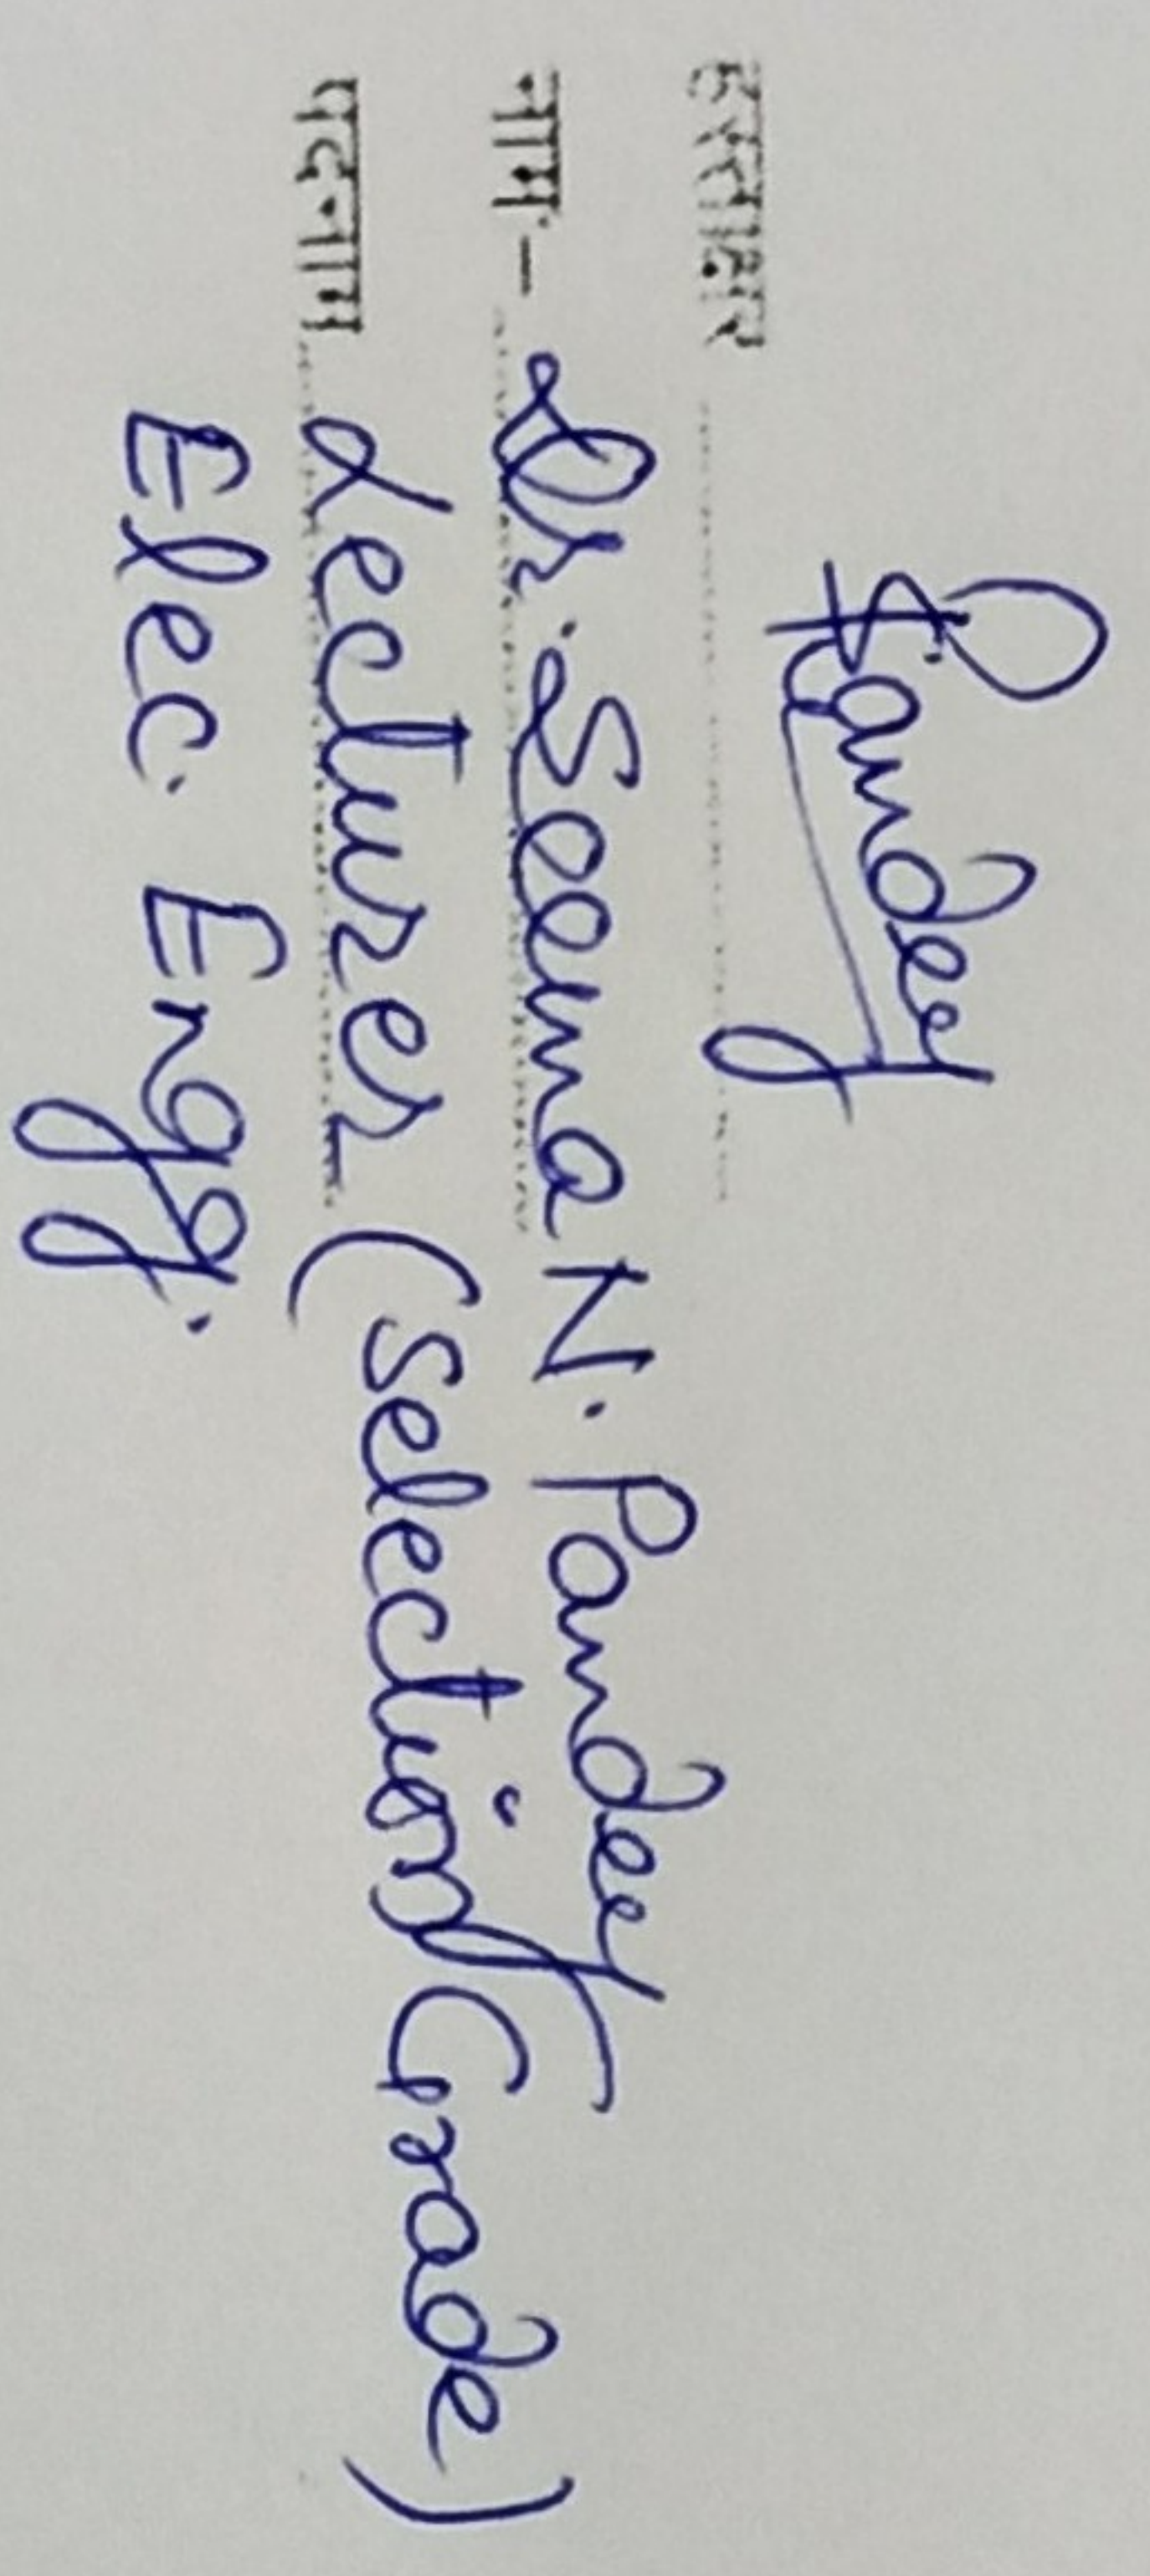 हस्ताक्षर Pandey
नाम - Dr. Seema N. Pandey
पदनाम Lecturer (Selection Grade)
Elec. Engg.